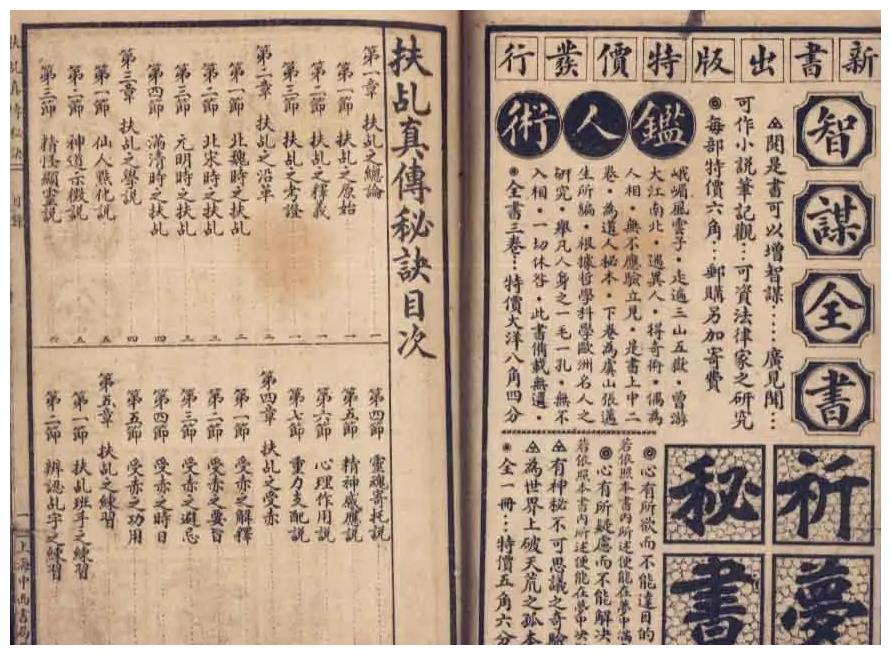 新書出版特價發行
智謀全書
▲閱是書可以增智謀……廣見聞…
可作小說筆記觀…可資法律家之研究
◉每部特價六角…郵購另加寄費
鑑人術
峨嵋風雲子·走遍三山五嶽·曾游
大江南北·遇異人·得奇術·偶為
人相·無不應驗立見·是書上中二
卷·為道人秘本·下卷為虞山張邁
生所編·根據哲學科學歐洲名人之
研究·舉凡人身之一毛一孔·無不
入相·一切休咎·此書備載無遺·
◉全書三卷…特價大洋八角四分
祈夢
秘書
◎心有所欲而不能達目的
若依照本書內所述便能在夢中滿
◎心有所疑慮而不能解決
若依照本書內所述便能在夢中決
▲有神秘不可思議之奇驗
▲為世界上破天荒之孤本
◉全一冊…特價五角六分
扶乩真傳秘訣目次
第一章 扶乩之總論 一
第一節 扶乩之原始 一
第二節 扶乩之釋義 一
第三節 扶乩之考證 一
第二章 扶乩之沿革 二
第一節 北魏時之扶乩 二
第二節 北宋時之扶乩 三
第三節 元明時之扶乩 三
第四節 滿清時之扶乩 四
第三章 扶乩之學說 四
第一節 仙人點化說 五
第二節 神道示微說 五
第三節 精怪顯靈說 六
第四節 靈魂寄托說
第五節 精神感應說
第六節 心理作用說
第七節 重力支配說
第四章 扶乩之受赤
第一節 受赤之解釋
第二節 受赤之要旨
第三節 受赤之避忌
第四節 受赤之時日
第五節 受赤之功用
第五章 扶乩之練習
第一節 扶乩班手之練習
第二節 辨認乩字之練習
扶乩真傳秘訣 目錄
一 上海中西書局